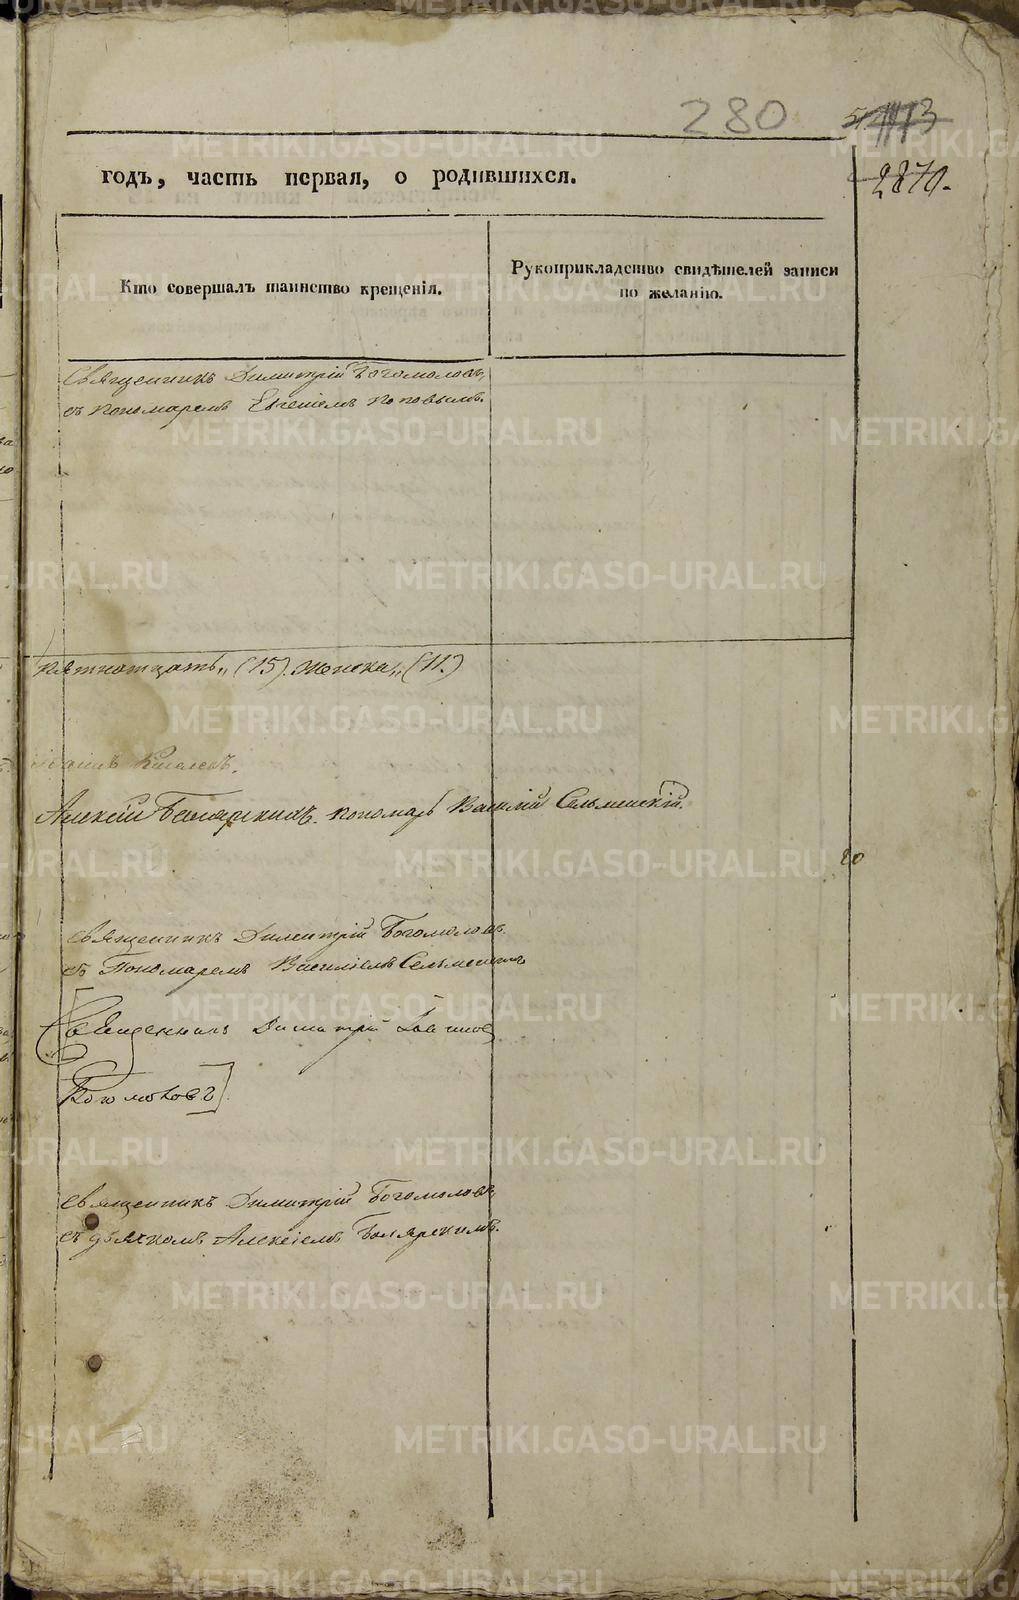 280
2870.
годъ, часть первая, о родившихся.
Кто совершалъ таинство крещенія.
Рукоприкладство свидѣтелей записи
по желанію.
Священникъ Димитрій Богомоловъ,
съ пономаремъ Евгеніемъ Поповымъ.
пятнатцать,, (15). женска,, (11.)
Алексій Боляркинъ. пономарь Василій Сельменскій.
20
Священникъ Димитрій Богомоловъ.
съ Пономаремъ Василіемъ Сельменскимъ
Священникъ Димитрій
Богомоловъ
Священникъ Димитрій Богомоловъ,
съ дьячкомъ Алексіемъ
METRIKI.GASO-URAL.RU